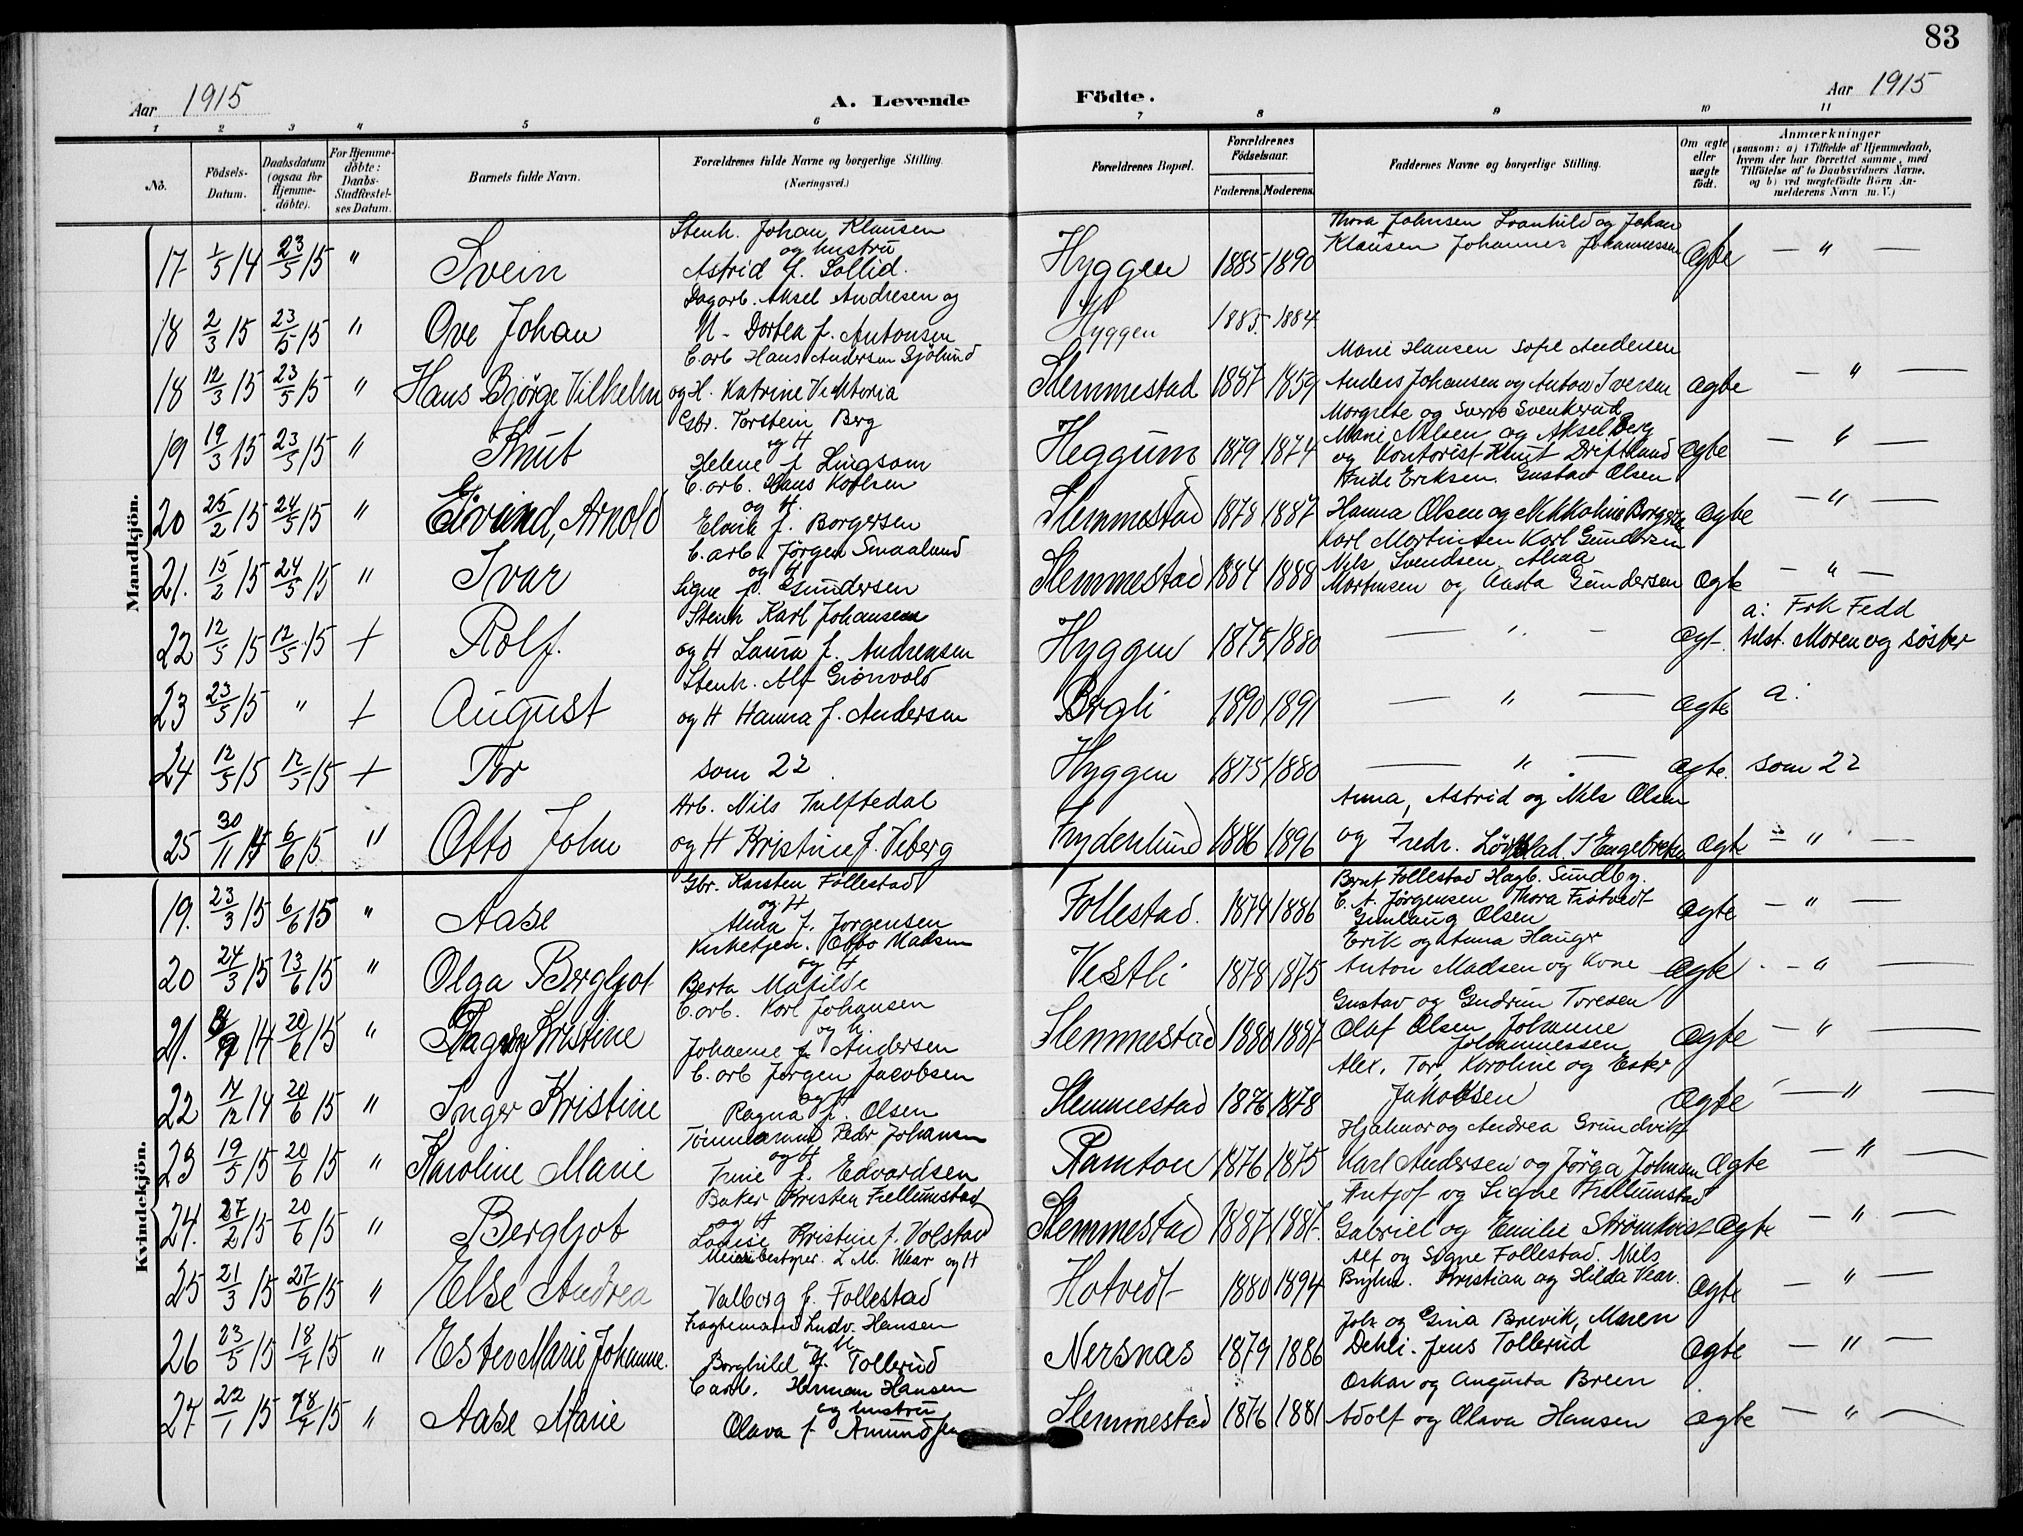 83
Aar 1915
A. Levende
Födte.
Aar 1915
1 2 3 4 5 6 7 8 9 10 11
No.
Födsels-
Datum.
Daabsdatum
(ogsaa for
Hjemme-
döbte).
For Hjemme-
döbte:
Daabs-
Stadfæstel-
ses Datum.
Barnets fulde Navn.
Forældrenes fulde Navne og borgerlige Stilling.
(Næringsvei.)
Forældrenes Bopæl.
Forældrenes
Födselsaar.
Faderens. Moderens.
Faddernes Navne og borgerlige Stilling.
Om ægte
eller
uægte
födt.
Anmærkninger
(saasom: a) i Tilfælde af Hjemmedaab,
hvem der har forrettet samme, med
Tilföielse af to Daabsvidners Navne,
og b) ved uægtefödte Börn An-
melderens Navn m. V.)
Mandkjön.
Stenh. Johan Klausen
og hustru
Astrid f. Sollid.
17 1/5 14 23/5 15 " Svein
Hyggen 1885 1890
Thora Johnsen Svanhild og Johan
Klausen Johannes Johannessen
ægte — " —
Dagarb. Aksel Andresen og
18 2/3 15 23/5 15 " Ove Johan
H - Dortea f. Antonsen
Hyggen 1885 1884
C. arb Hans Andersen Sjölund
18 12/3 15 23/5 15 " Hans Bjørge Vilhelm og H. Katrine Viktoria
Slemmestad 1887 1859
Marie Hansen Sofie Andersen
Anders Johansen og Anton Iversen
ægte — " —
Gbr. Torstein Berg
og H
19 19/3 15 23/5 15 " Knut
Helene f Lingsom
Heggum 1879 1874
Margrete og Sverre Svenkerud
Marie Nilsen og Aksel Berg
og Kontorist Knut Driftland
ægte — " —
C. arb. Hans Karlsen
og H.
20 25/2 15 24/5 15 " Eivind, Arnold
f. Borgersen
Slemmestad 1878 1887
Eriksen. Gustav Olsen
Hanna Olsen og
ægte — " —
C. arb. Jørgen Smaalund
og H
21. 15/2 15 24/5 15 " Ivar
Signe f. Gundersen
Slemmestad 1884 1888
Karl Martinsen Karl Gundersen
Nils Svendsen, Alma
Martinsen og Aasta Gundersen
ægte — " —
Stenh Karl Johansen
22 12/5 15 12/5 15 + Rolf.
og H Laura f. Andreasen
Hyggen 1875 1880
— " —
ægt. a: Frk Fedd
tilst. Moren og søster
Stenh. Alf Grönvold
23 23/5 15 " + August
og H Hanna f. Andersen
Bergli 1890 1891
— " —
ægte a:
24 12/5 15 12/5 15 + Tor
som 22.
Hyggen 1875 1880
— " —
ægte. som 22
Arb. Nils Tulftedal
25 30/11 14 6/6 15 " Otto John
og H Kristine f. Veberg
Frydenlund 1886 1896
Anna, Astrid og Nils Olsen
og Fredr. Løvblad
ægte — " —
Kvindekjön.
Gbr. Karsten Follestad
og H
19. 23/3 15 6/6 15 " Aase
Alma f. Jørgensen
Follestad. 1874 1886
Bernt Follestad Hagb. Sundby.
C. A. Jørgensen Thora Frøtvedt
Gunlaug Olsen
ægte — " —
Kirketjen. Otto Madsen
og H
20 24/3 15 13/6 15 " Olga Bergljot
Berta Matilde
Vestli 1878 1875
Erik og Anna Hauger
Anton Madsen og Kone
ægte — " —
C. arb. Karl Johansen
og h.
21. 8/9 14 20/6 15 " Dagny Kristine
Johanne f. Andersen
Slemmestad 1880 1887
Gustav og Gudrun Toresen
Olaf Olsen, Johanne
Johannessen
ægte — " —
C. arb Jørgen Jacobsen
og H
22 7/12 14 20/6 15 " Inger Kristine
Ragna f. Olsen
Slemmestad 1876 1878
Alex, Tor, Karoline og Ester
Jakobsen
ægte — " —
Tömmermand Peder Johansen
og H
23 19/5 15 20/6 15 " Karoline Marie
Trine f. Edvardsen
Ramton 1876 1875
Hjalmar og Andrea Grundvik
Karl Andersen og Jørga Johnsen
ægte — " —
Baker Kristen Fellumstad
og H
24. 27/2 15 20/6 15 " Bergljot
Lovise Kristine f. Volstad
Slemmestad 1887 1887.
Fritjof og Signe Fellumstad
Gabriel og Emilie Strømkvist
ægte — " —
Meieribestyrer. L. M. Wear og H
25 21/3 15 27/6 15 " Else Andrea
Valborg f. Follestad
Hotvedt 1880 1894
Alf og Signe Follestad. Nils
Kristian og Hilda Vear.
ægte — " —
Fragtemand Ludv. Hansen
og H
26 23/5 15 18/7 15 " Ester Marie Johanne.
Borghild f. Tollerud
Nersnas 1879 1886
Joh. og Gina Brevik, Maren
Dehli. Jens Tollerud
ægte — " —
C arb. Herman Hansen
og hustru
27. 22/1 15 18/7 15 " Aase Marie
Olava f Amundsen
Slemmestad 1876 1881
Oskar og Augusta Breen
Adolf og Olava Hansen
ægte — " —